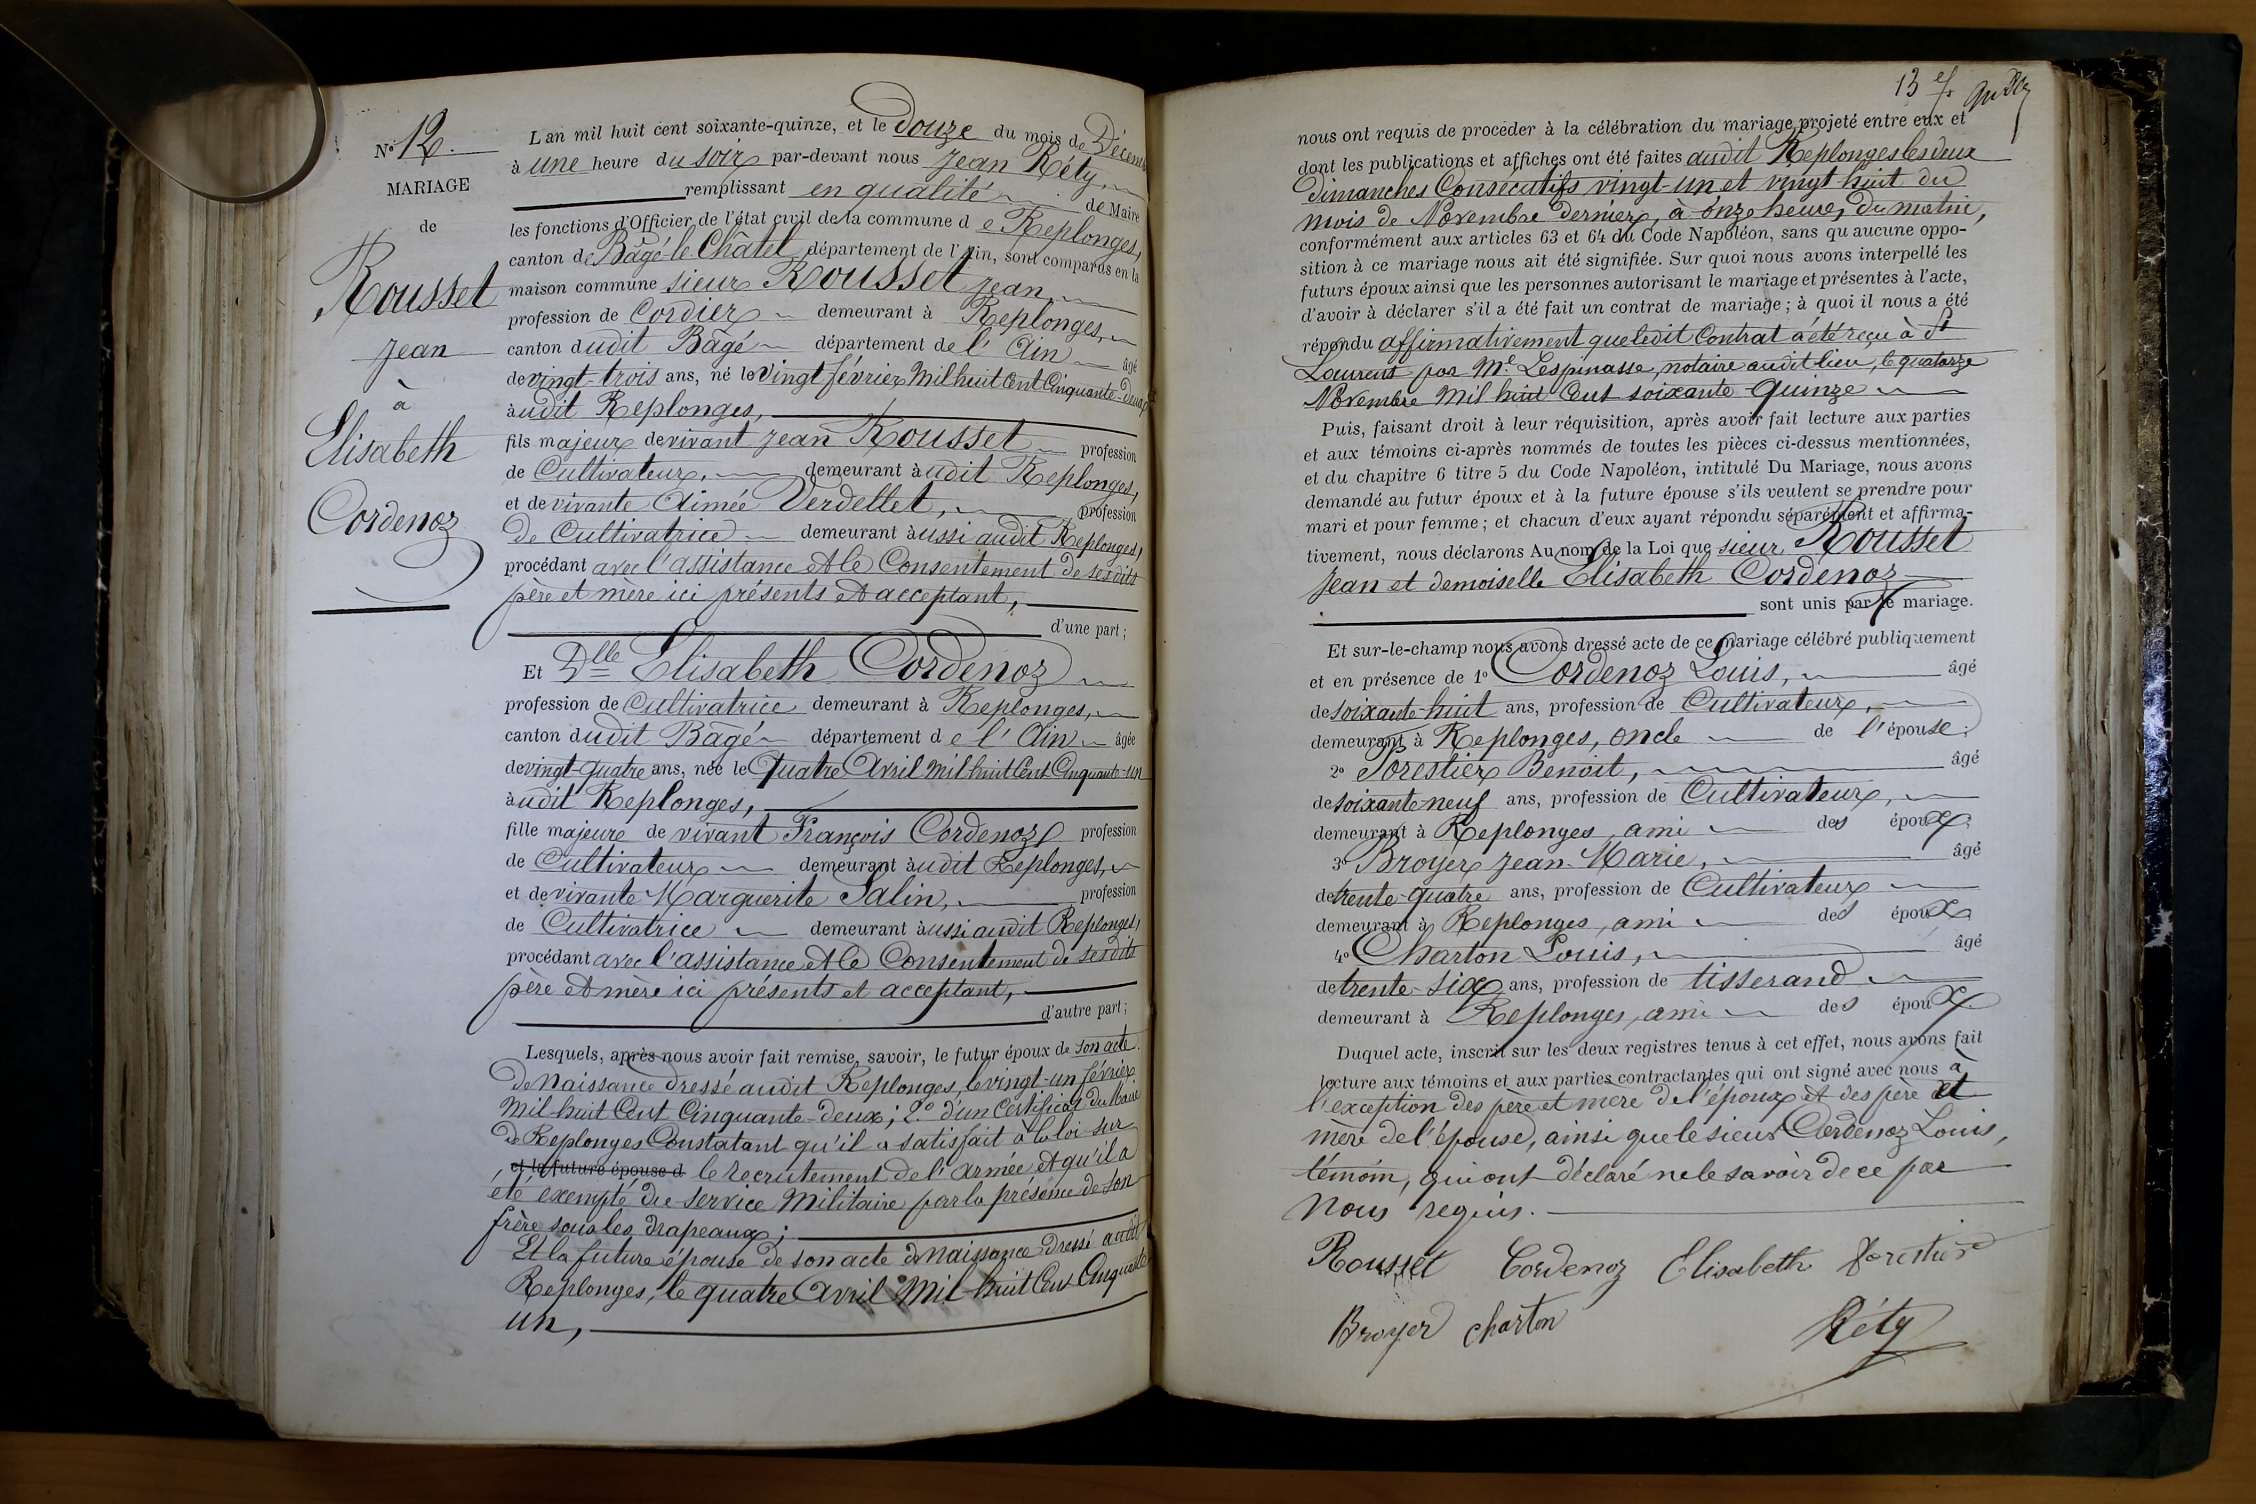 N° 12.
MARIAGE
de
Rousset
Jean
à
Elisabeth
Cordenoz
L'an mil huit cent soixante-quinze, et le douze du mois de Décem
à une heure du soir par-devant nous Jean Réty,
remplissant en qualité de Maire
les fonctions d'Officier de l'état civil de la commune de Replonges,
canton de Bâgé-le-Châtel département de l'Ain, sont comparus en la
maison commune sieur Rousset Jean
profession de Cordier demeurant à Replonges,
canton dudit Bâgé département de l'Ain âgé
de vingt-trois ans, né le vingt février mil huit Cent Cinquante-deux
àudit Replonges,
fils majeur de vivant Jean Rousset profession
de Cultivateur, demeurant àudit Replonges,
et de vivante Aimée Verdellet, profession
de Cultivatrice demeurant àussi audit Replonges,
procédant avec l'assistance et le Consentement de ses dits
père et mère ici présents et acceptant,
d'une part;
Et Dlle Elisabeth Cordenoz
profession de Cultivatrice demeurant à Replonges,
canton dudit Bâgé département de l'Ain âgée
de vingt-quatre ans, née le Quatre Avril mil huit Cent Cinquante-un
àudit Replonges,
fille majeure de vivant François Cordenoz profession
de Cultivateur demeurant àudit Replonges,
et de vivante Marguerite Salin, profession
de Cultivatrice demeurant àussi audit Replonges,
procédant avec l'assistance et le Consentement de ses dits
père et mère ici présents et acceptant,
d'autre part;
Lesquels, après nous avoir fait remise, savoir, le futur époux de son acte
de Naissance dressé audit Replonges, le vingt-un février
mil huit Cent Cinquante-deux; 2° d'un Certificat du Maire
de Replonges Constatant qu'il a satisfait à la loi sur
, et la future épouse d le recrutement de l'armée et qu'il a
été exempté du service Militaire par la présence de son
frère sous les drapeaux;
Et la future épouse de son acte de Naissance dressé audit
Replonges, le quatre Avril Mil-huit Cent Cinquante
un,
13 ef
nous ont requis de procéder à la célébration du mariage projeté entre eux et
dont les publications et affiches ont été faites audit Replonges les deux
dimanches Consécutifs vingt-un et vingt huit du
mois de Novembre dernier, à onze heures du matin,
conformément aux articles 63 et 64 du Code Napoléon, sans qu'aucune oppo-
sition à ce mariage nous ait été signifiée. Sur quoi nous avons interpellé les
futurs époux ainsi que les personnes autorisant le mariage et présentes à l'acte,
d'avoir à déclarer s'il a été fait un contrat de mariage; à quoi il nous a été
répondu affirmativement que ledit Contrat a été reçu à St
Laurent par Me Lespinasse, notaire audit lieu, le quatorze
Novembre mil huit Cent soixante-Quinze
Puis, faisant droit à leur réquisition, après avoir fait lecture aux parties
et aux témoins ci-après nommés de toutes les pièces ci-dessus mentionnées,
et du chapitre 6 titre 5 du Code Napoléon, intitulé Du Mariage, nous avons
demandé au futur époux et à la future épouse s'ils veulent se prendre pour
mari et pour femme; et chacun d'eux ayant répondu séparément et affirma-
tivement, nous déclarons Au nom de la Loi que sieur Rousset
Jean et demoiselle Elisabeth Cordenoz
sont unis par le mariage.
Et sur-le-champ nous avons dressé acte de ce mariage célébré publiquement
et en présence de 1° Cordenoz Louis, âgé
de soixante-huit ans, profession de Cultivateur,
demeurant à Replonges, oncle de l'épouse;
2° Forestier Benoit, âgé
de soixante-neuf ans, profession de Cultivateur,
demeurant à Replonges, ami des époux;
3° Broyer Jean-Marie, âgé
de trente-quatre ans, profession de Cultivateur
demeurant à Replonges, ami des époux
4° Charton Louis, âgé
de trente-six ans, profession de tisserand
demeurant à Replonges, ami des époux.
Duquel acte, inscrit sur les deux registres tenus à cet effet, nous avons fait
lecture aux témoins et aux parties contractantes qui ont signé avec nous à
l'exception des père et mère de l'époux et des père et
mère de l'épouse, ainsi que le sieur Cordenoz Louis,
témoin, qui ont déclaré ne le savoir de ce par
Nous requis.
Rousset Cordenoz Elisabeth Forestier
Broyer Charton Réty